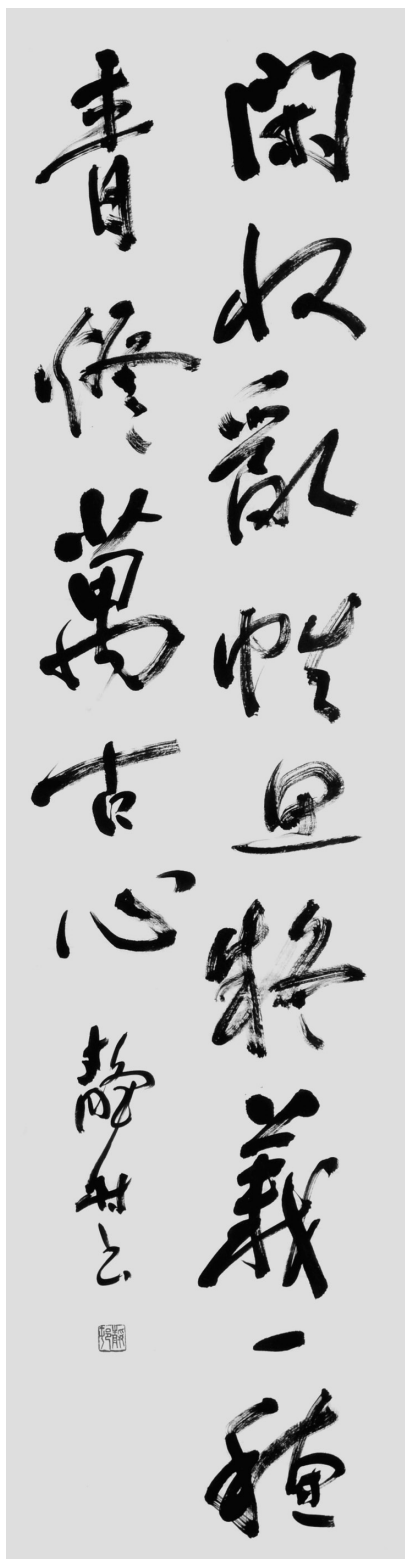 閑収亂帙思疑義一穂
青燈萬古心 静村書